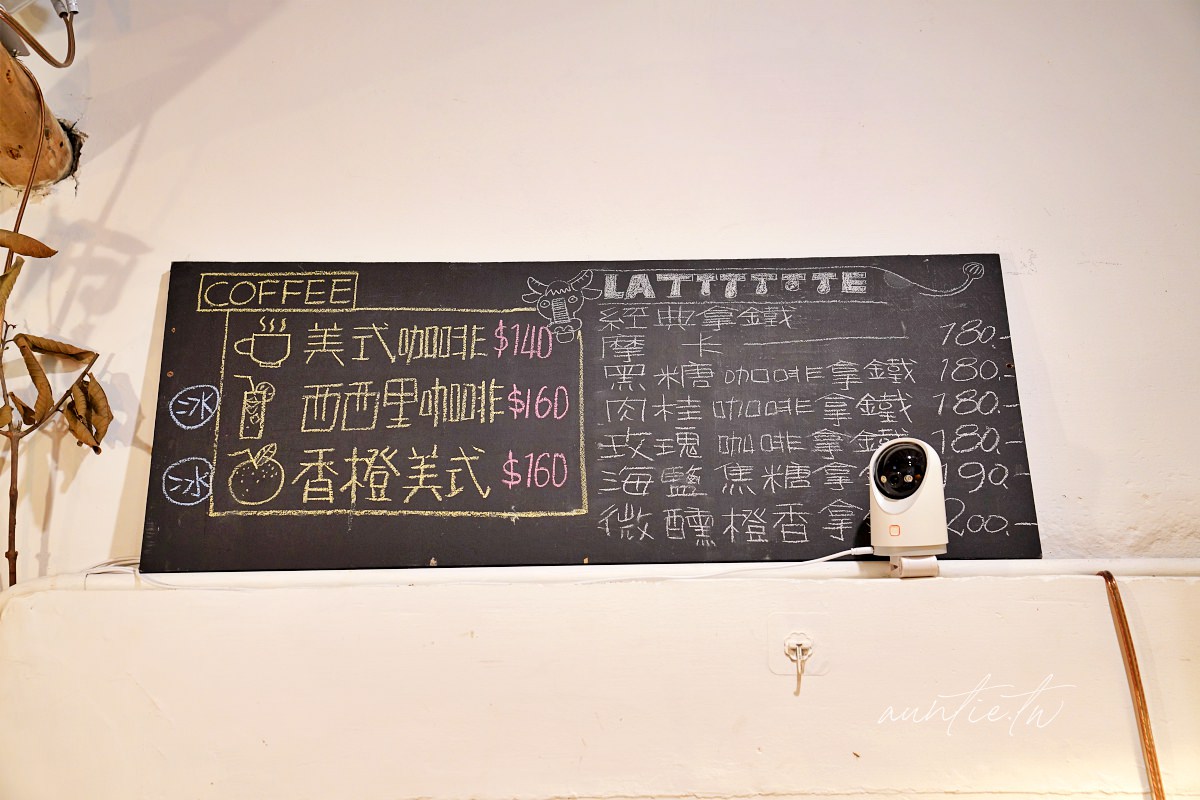 COFFEE
美式咖啡 $140
冰 西西里咖啡 $160
冰 香橙美式 $160
LATTTTTTE
經典拿鐵
摩卡 — 180.-
黑糖咖啡拿鐵 180.-
肉桂咖啡拿鐵 180.-
玫瑰咖啡拿鐵 180.-
海鹽焦糖拿 190.-
微醺橙香拿 200.-
auntie.tw